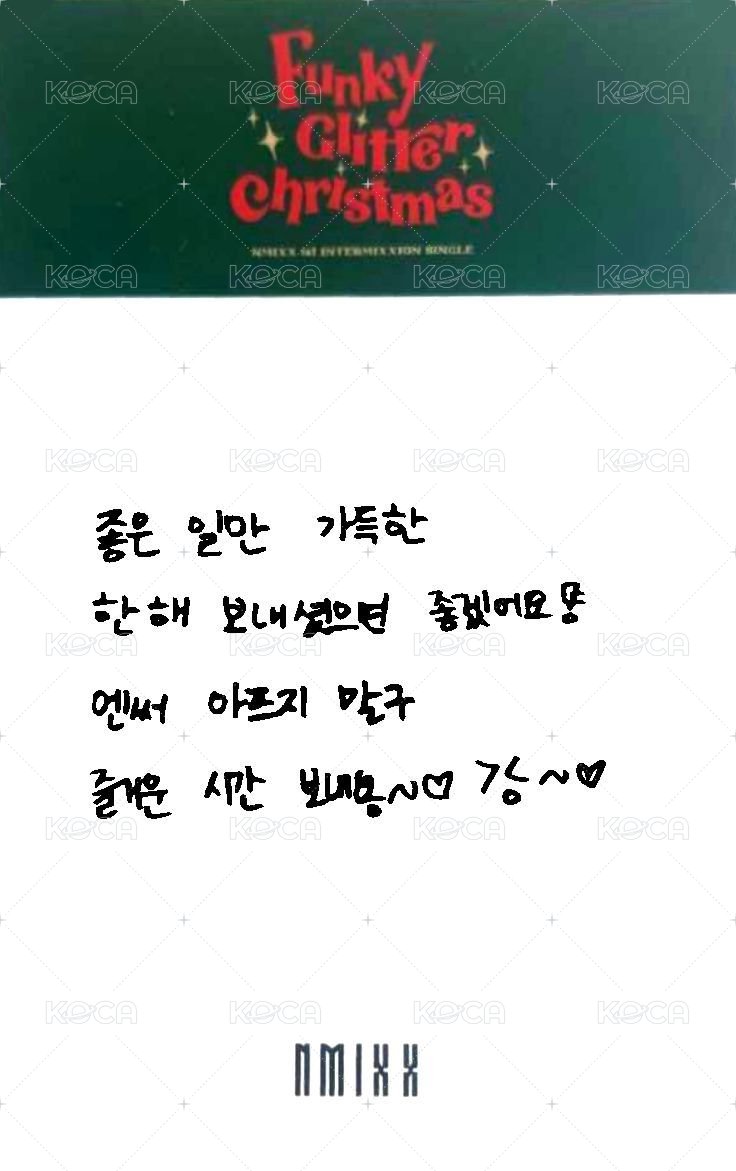 Funky
Glitter
Christmas
NMIXX 1st INTERMIXXION SINGLE
좋은 일만 가득한
한해 보내셨으면 좋겠어요 뿅
엔써 아프지 말구
즐거운 시간 보내용~♡ 강~♡
NMIXX
KOCA